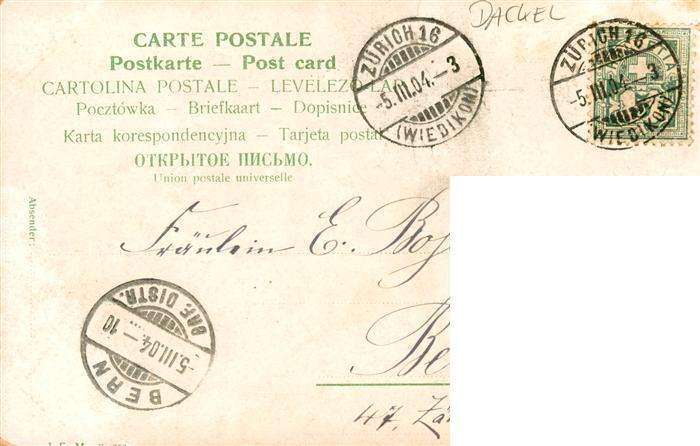 DACKEL
CARTE POSTALE
Postkarte — Post card
CARTOLINA POSTALE – LEVELEZŐ-LAP
Pocztówka – Briefkaart – Dopisnice
Karta korespondencyjna – Tarjeta postal
ОТКРЫТОЕ ПИСЬМО.
Union postale universelle
ZÜRICH 16
-5.III.04.-3
(WIEDIKON)
ZÜRICH 16
-5.III.04.-3
(WIEDIKON)
Absender:
Fräulein E.
BERN
-5.III.04.-10
BRF. DISTR.
47.